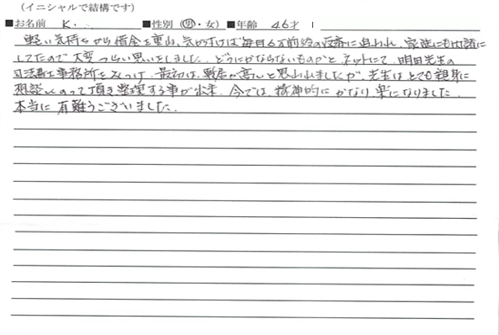 (イニシャルで結構です)
■お名前 K. ■性別(男・女) ■年齢 46才
軽い気持ちから借金を重ね、気づけば毎月6万前後の返済に追われ、家族にも内緒に
してたので大変つらい思いをしました。どうにかならないものかとネットにて、明田先生の
司法書士事務所をみつけ、最初は、敷居が高いと思われましたが、先生はとても親身に
相談にのって頂き整理する事が出来、今では、精神的にかなり楽になりました。
本当に有難うございました。